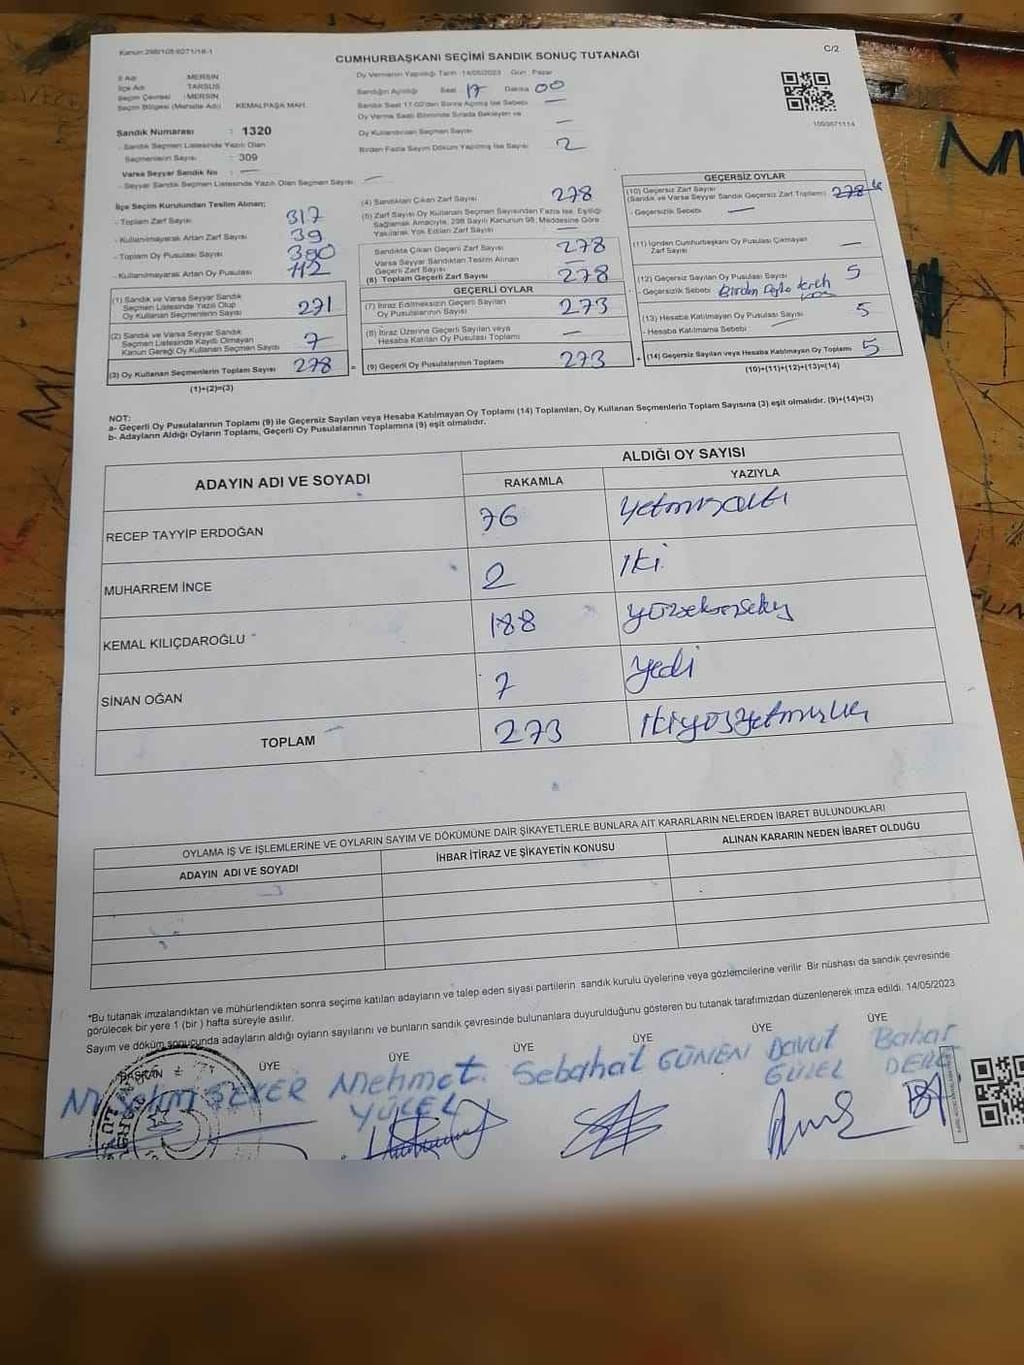 Kanun:298/105-6271/18-1
C/2
CUMHURBAŞKANI SEÇİMİ SANDIK SONUÇ TUTANAĞI
İl Adı : MERSİN
İlçe Adı : TARSUS
Seçim Çevresi : MERSİN
Seçim Bölgesi (Mahalle Adı) : KEMALPAŞA MAH.
Sandık Numarası : 1320
- Sandık Seçmen Listesinde Yazılı Olan
Seçmenlerin Sayısı : 309
Varsa Seyyar Sandık No : —
- Seyyar Sandık Seçmen Listesinde Yazılı Olan Seçmen Sayısı : —
Oy Vermenin Yapıldığı Tarih : 14/05/2023 Gün : Pazar
Sandığın Açıldığı Saat 17 Dakika 00
Sandık Saat 17:00'den Sonra Açılmış İse Sebebi —
Oy Verme Saati Bitiminde Sırada Bekleyen ve
Oy Kullandırılan Seçmen Sayısı —
Birden Fazla Sayım Döküm Yapılmış İse Sayısı 2
İlçe Seçim Kurulundan Teslim Alınan;
- Toplam Zarf Sayısı 317
- Kullanılmayarak Artan Zarf Sayısı 39
- Toplam Oy Pusulası Sayısı 390
- Kullanılmayarak Artan Oy Pusulası 112
(1) Sandık ve Varsa Seyyar Sandık
Seçmen Listesinde Yazılı Olup
Oy Kullanan Seçmenlerin Sayısı 271
(2) Sandık ve Varsa Seyyar Sandık
Seçmen Listesinde Kaydı Olmayan
Kanun Gereği Oy Kullanan Seçmen Sayısı 7
(3) Oy Kullanan Seçmenlerin Toplam Sayısı 278
(1)+(2)=(3)
(4) Sandıktan Çıkan Zarf Sayısı 278
(5) Zarf Sayısı Oy Kullanan Seçmen Sayısından Fazla İse, Eşitliği
Sağlamak Amacıyla, 298 Sayılı Kanunun 98. Maddesine Göre
Yakılarak Yok Edilen Zarf Sayısı —
Sandıkta Çıkan Geçerli Zarf Sayısı 278
Varsa Seyyar Sandıktan Teslim Alınan
Geçerli Zarf Sayısı —
(6) Toplam Geçerli Zarf Sayısı 278
GEÇERLİ OYLAR
(7) İtiraz Edilmeksizin Geçerli Sayılan
Oy Pusulalarının Sayısı 273
(8) İtiraz Üzerine Geçerli Sayılan veya
Hesaba Katılan Oy Pusulası Toplamı —
(9) Geçerli Oy Pusulalarının Toplamı 273
GEÇERSİZ OYLAR
(10) Geçersiz Zarf Sayısı
(Sandık ve Varsa Seyyar Sandık Geçersiz Zarf Toplamı) 278
- Geçersizlik Sebebi —
(11) İçinden Cumhurbaşkanı Oy Pusulası Çıkmayan
Zarf Sayısı —
(12) Geçersiz Sayılan Oy Pusulası Sayısı 5
- Geçersizlik Sebebi Birden
(13) Hesaba Katılmayan Oy Pusulası Sayısı 5
- Hesaba Katılmama Sebebi
(14) Geçersiz Sayılan veya Hesaba Katılmayan Oy Toplamı 5
(10)+(11)+(12)+(13)=(14)
NOT:
a- Geçerli Oy Pusulalarının Toplamı (9) ile Geçersiz Sayılan veya Hesaba Katılmayan Oy Toplamı (14) Toplamları, Oy Kullanan Seçmenlerin Toplam Sayısına (3) eşit olmalıdır. (9)+(14)=(3)
b- Adayların Aldığı Oyların Toplamı, Geçerli Oy Pusulalarının Toplamına (9) eşit olmalıdır.
ADAYIN ADI VE SOYADI
ALDIĞI OY SAYISI
RAKAMLA YAZIYLA
RECEP TAYYİP ERDOĞAN 76 yetmişaltı
MUHARREM İNCE 2 iki
KEMAL KILIÇDAROĞLU 188 yüzseksensekiz
SİNAN OĞAN 7 yedi
TOPLAM 273 ikiyüzyetmişüç
OYLAMA İŞ VE İŞLEMLERİNE VE OYLARIN SAYIM VE DÖKÜMÜNE DAİR ŞİKAYETLERLE BUNLARA AİT KARARLARIN NELERDEN İBARET BULUNDUKLARI
ADAYIN ADI VE SOYADI İHBAR İTİRAZ VE ŞİKAYETİN KONUSU ALINAN KARARIN NEDEN İBARET OLDUĞU
*Bu tutanak imzalandıktan ve mühürlendikten sonra seçime katılan adayların ve talep eden siyasi partilerin sandık kurulu üyelerine veya gözlemcilerine verilir. Bir nüshası da sandık çevresinde
görülecek bir yere 1 (bir) hafta süreyle asılır.
Sayım ve döküm sonucunda adayların aldığı oyların sayılarını ve bunların sandık çevresinde bulunanlara duyurulduğunu gösteren bu tutanak tarafımızdan düzenlenerek imza edildi. 14/05/2023
BAŞKAN ÜYE ÜYE ÜYE ÜYE ÜYE
Mehmet YÜCEL
Sebahat GÜNEN
Davut GÜZEL
Bahar DERE